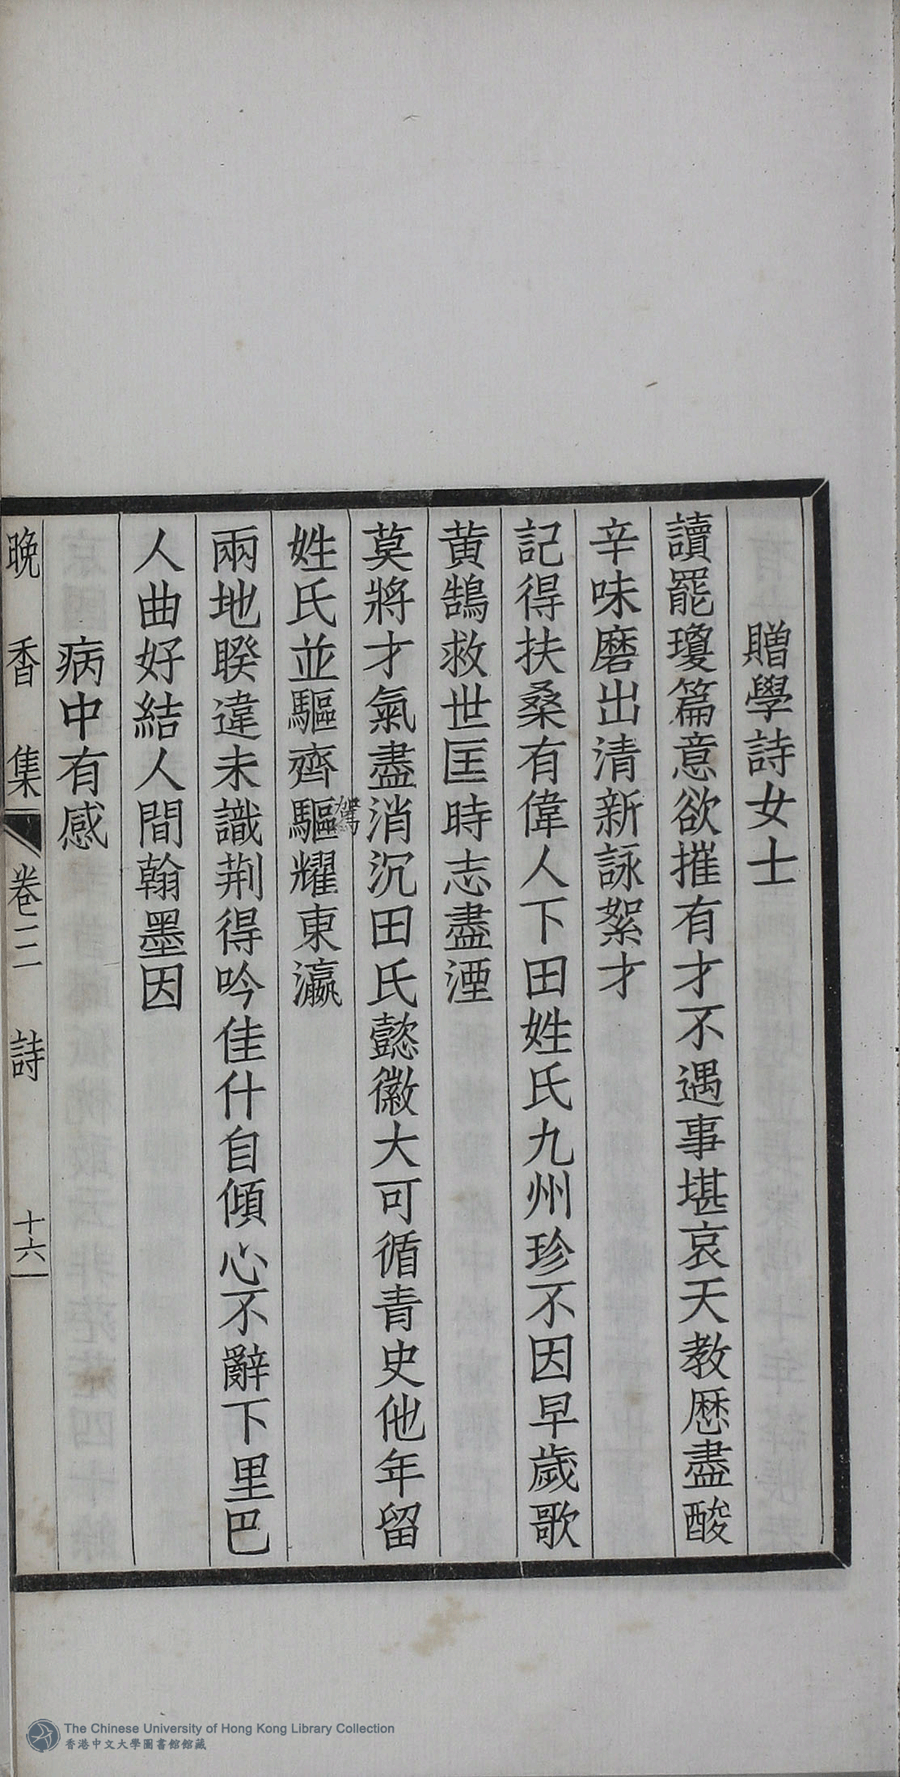 贈學詩女士
讀罷瓊篇意欲摧有才不遇事堪哀天教歷盡酸
辛味磨出清新詠絮才
記得扶桑有偉人下田姓氏九州珍不因早歲歌
黃鵠救世匡時志盡湮
莫將才氣盡消沉田氏懿徽大可循青史他年留
姓氏並驅齊驅耀東瀛
駕
兩地睽違未識荆得吟佳什自傾心不辭下里巴
人曲好結人間翰墨因
病中有感
晚香集 卷三 詩 十六
The Chinese University of Hong Kong Library Collection
香港中文大學圖書館館藏